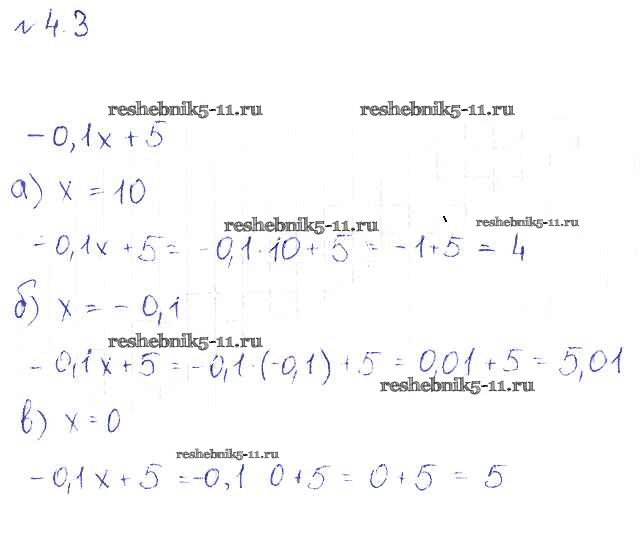 № 4.3
reshebnik5-11.ru reshebnik5-11.ru
-0,1x+5
а) x = 10
reshebnik5-11.ru reshebnik5-11.ru
-0,1x+5 = -0,1·10+5 = -1+5 = 4
б) x = -0,1
reshebnik5-11.ru
-0,1x+5 = -0,1·(-0,1)+5 = 0,01+5 = 5,01
reshebnik5-11.ru
в) x=0
reshebnik5-11.ru
-0,1x+5 = -0,1 0+5 = 0+5 = 5